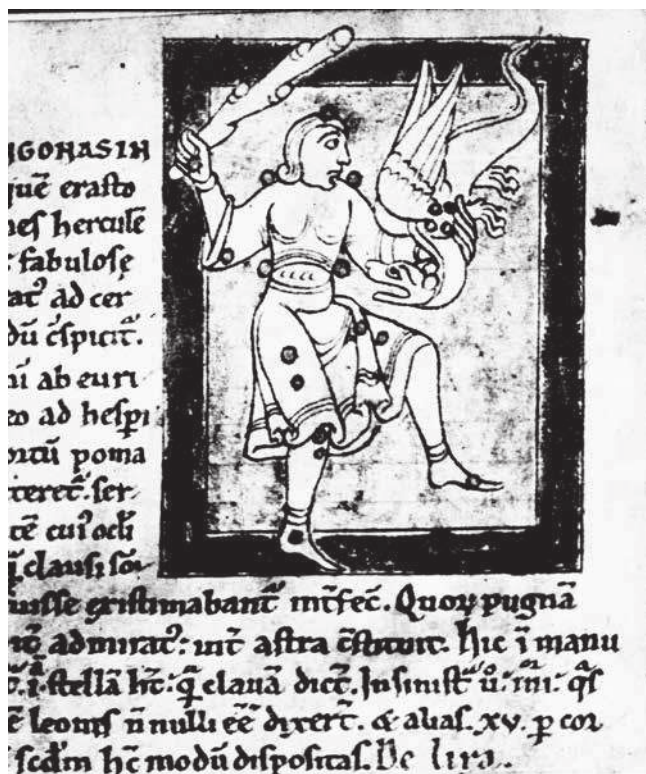 IGONASIN
quē erasto
nes herculē
fabulosę
at᾽ ad cer
dū c̄spicit᷑.
ni ab euri
eo ad hesꝑi
ortū poma
teret᷑. ser
tē cui᾽ ocl̄i
q̄ clausi
uisse existimabant᷑ int᷑fec̄. Quoꝝ pugnā
admirat᾽: int᷑ astra c̄stituit. Hic ī manu
ī. stellā ht̄: q̄ clauā dict̄. In sinist᷑ u᷑: iiii: q̄s
leonis n̄nulli eē dixert̄. & alias. xv. ꝑ cor
scd̄m hc̄ modū dispositas. De lira.